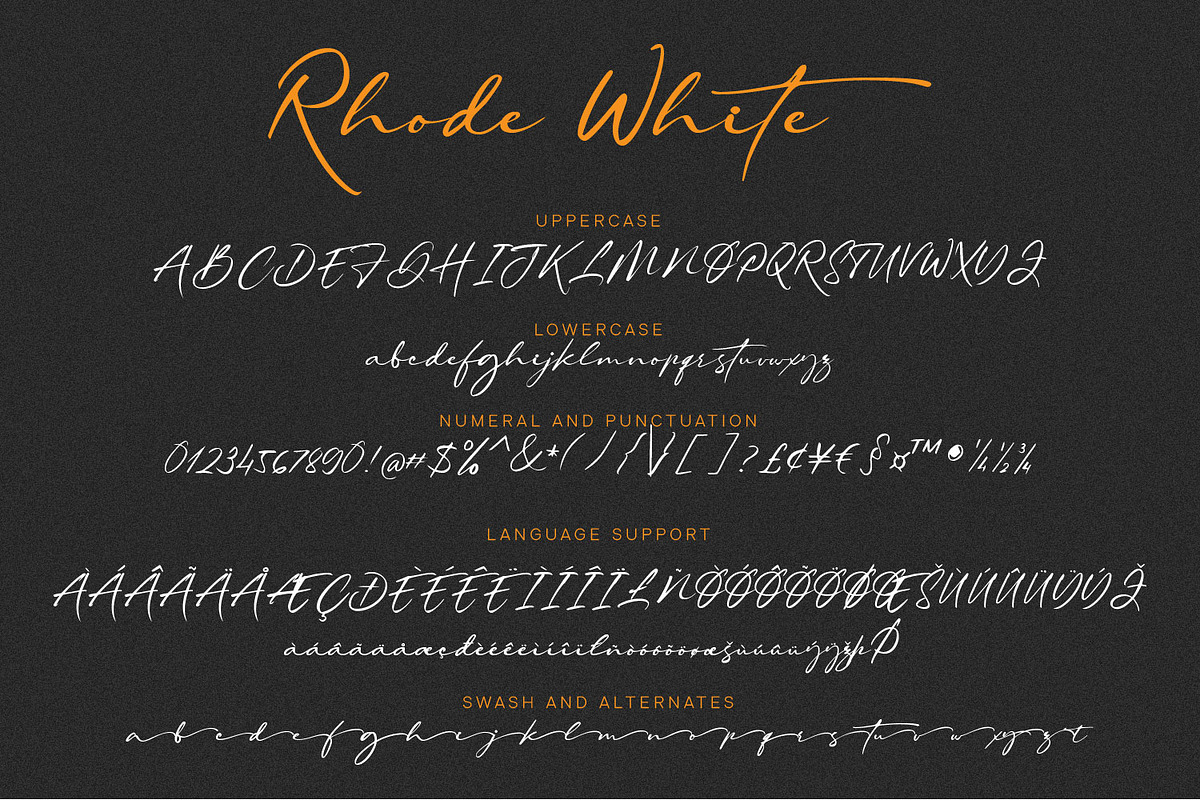 Rhode White
UPPERCASE
ABCDEFGHIJKLMNOPQRSTUVWXYZ
LOWERCASE
abcdefghijklmnopqrstuvwxyz
NUMERAL AND PUNCTUATION
01234567890!@#$%^&*(){|}[]?£¢¥€§¤™●¼½¾
LANGUAGE SUPPORT
ÀÁÂÃÄÅÆÇÐÈÉÊËÌÍÎÏŁÑÒÓÔÕÖØŒŠÙÚÛÜŸÝŽ
àáâãäåæçđèéêëìíîïłñòóôõöøœšùúûüýÿžþÞ
SWASH AND ALTERNATES
abcdefghijklmnopqrstuvwxyzt